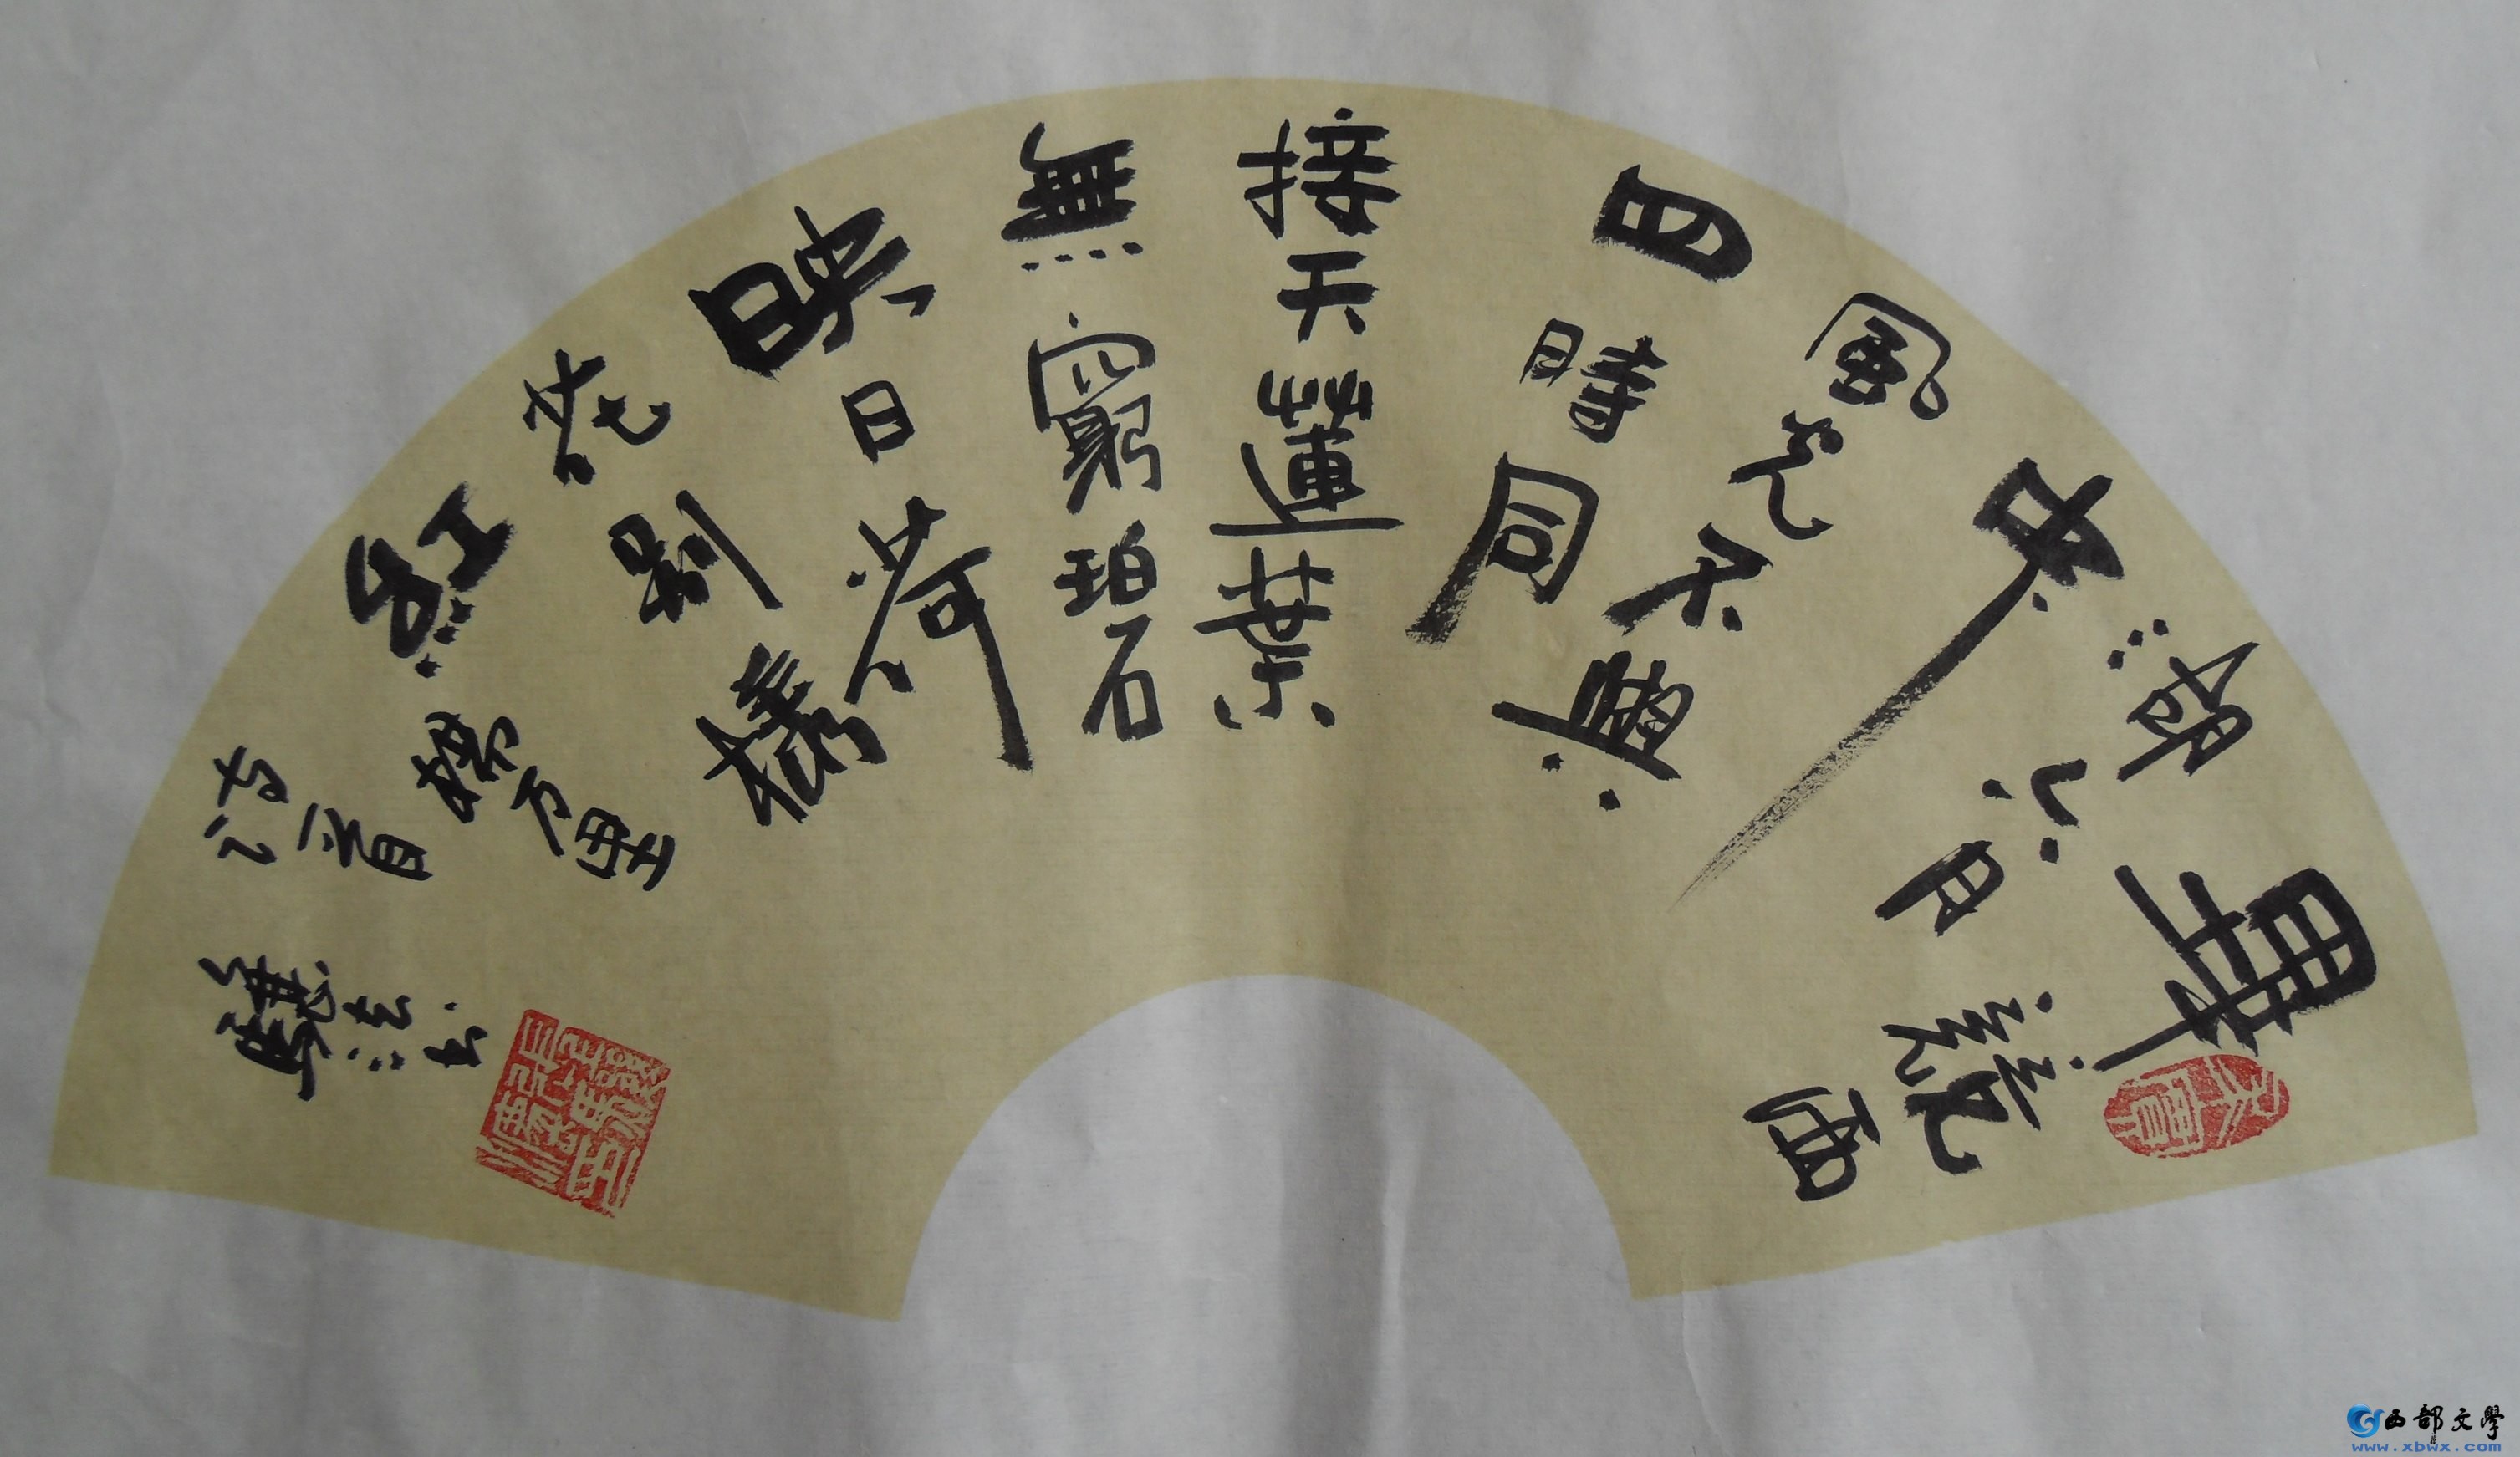 畢競西
湖六月
中
風光不與
四時同
接天蓮葉
無窮碧
映日荷
花別樣
紅 楊万里
诗一首
西部文學
www.xbwx.com